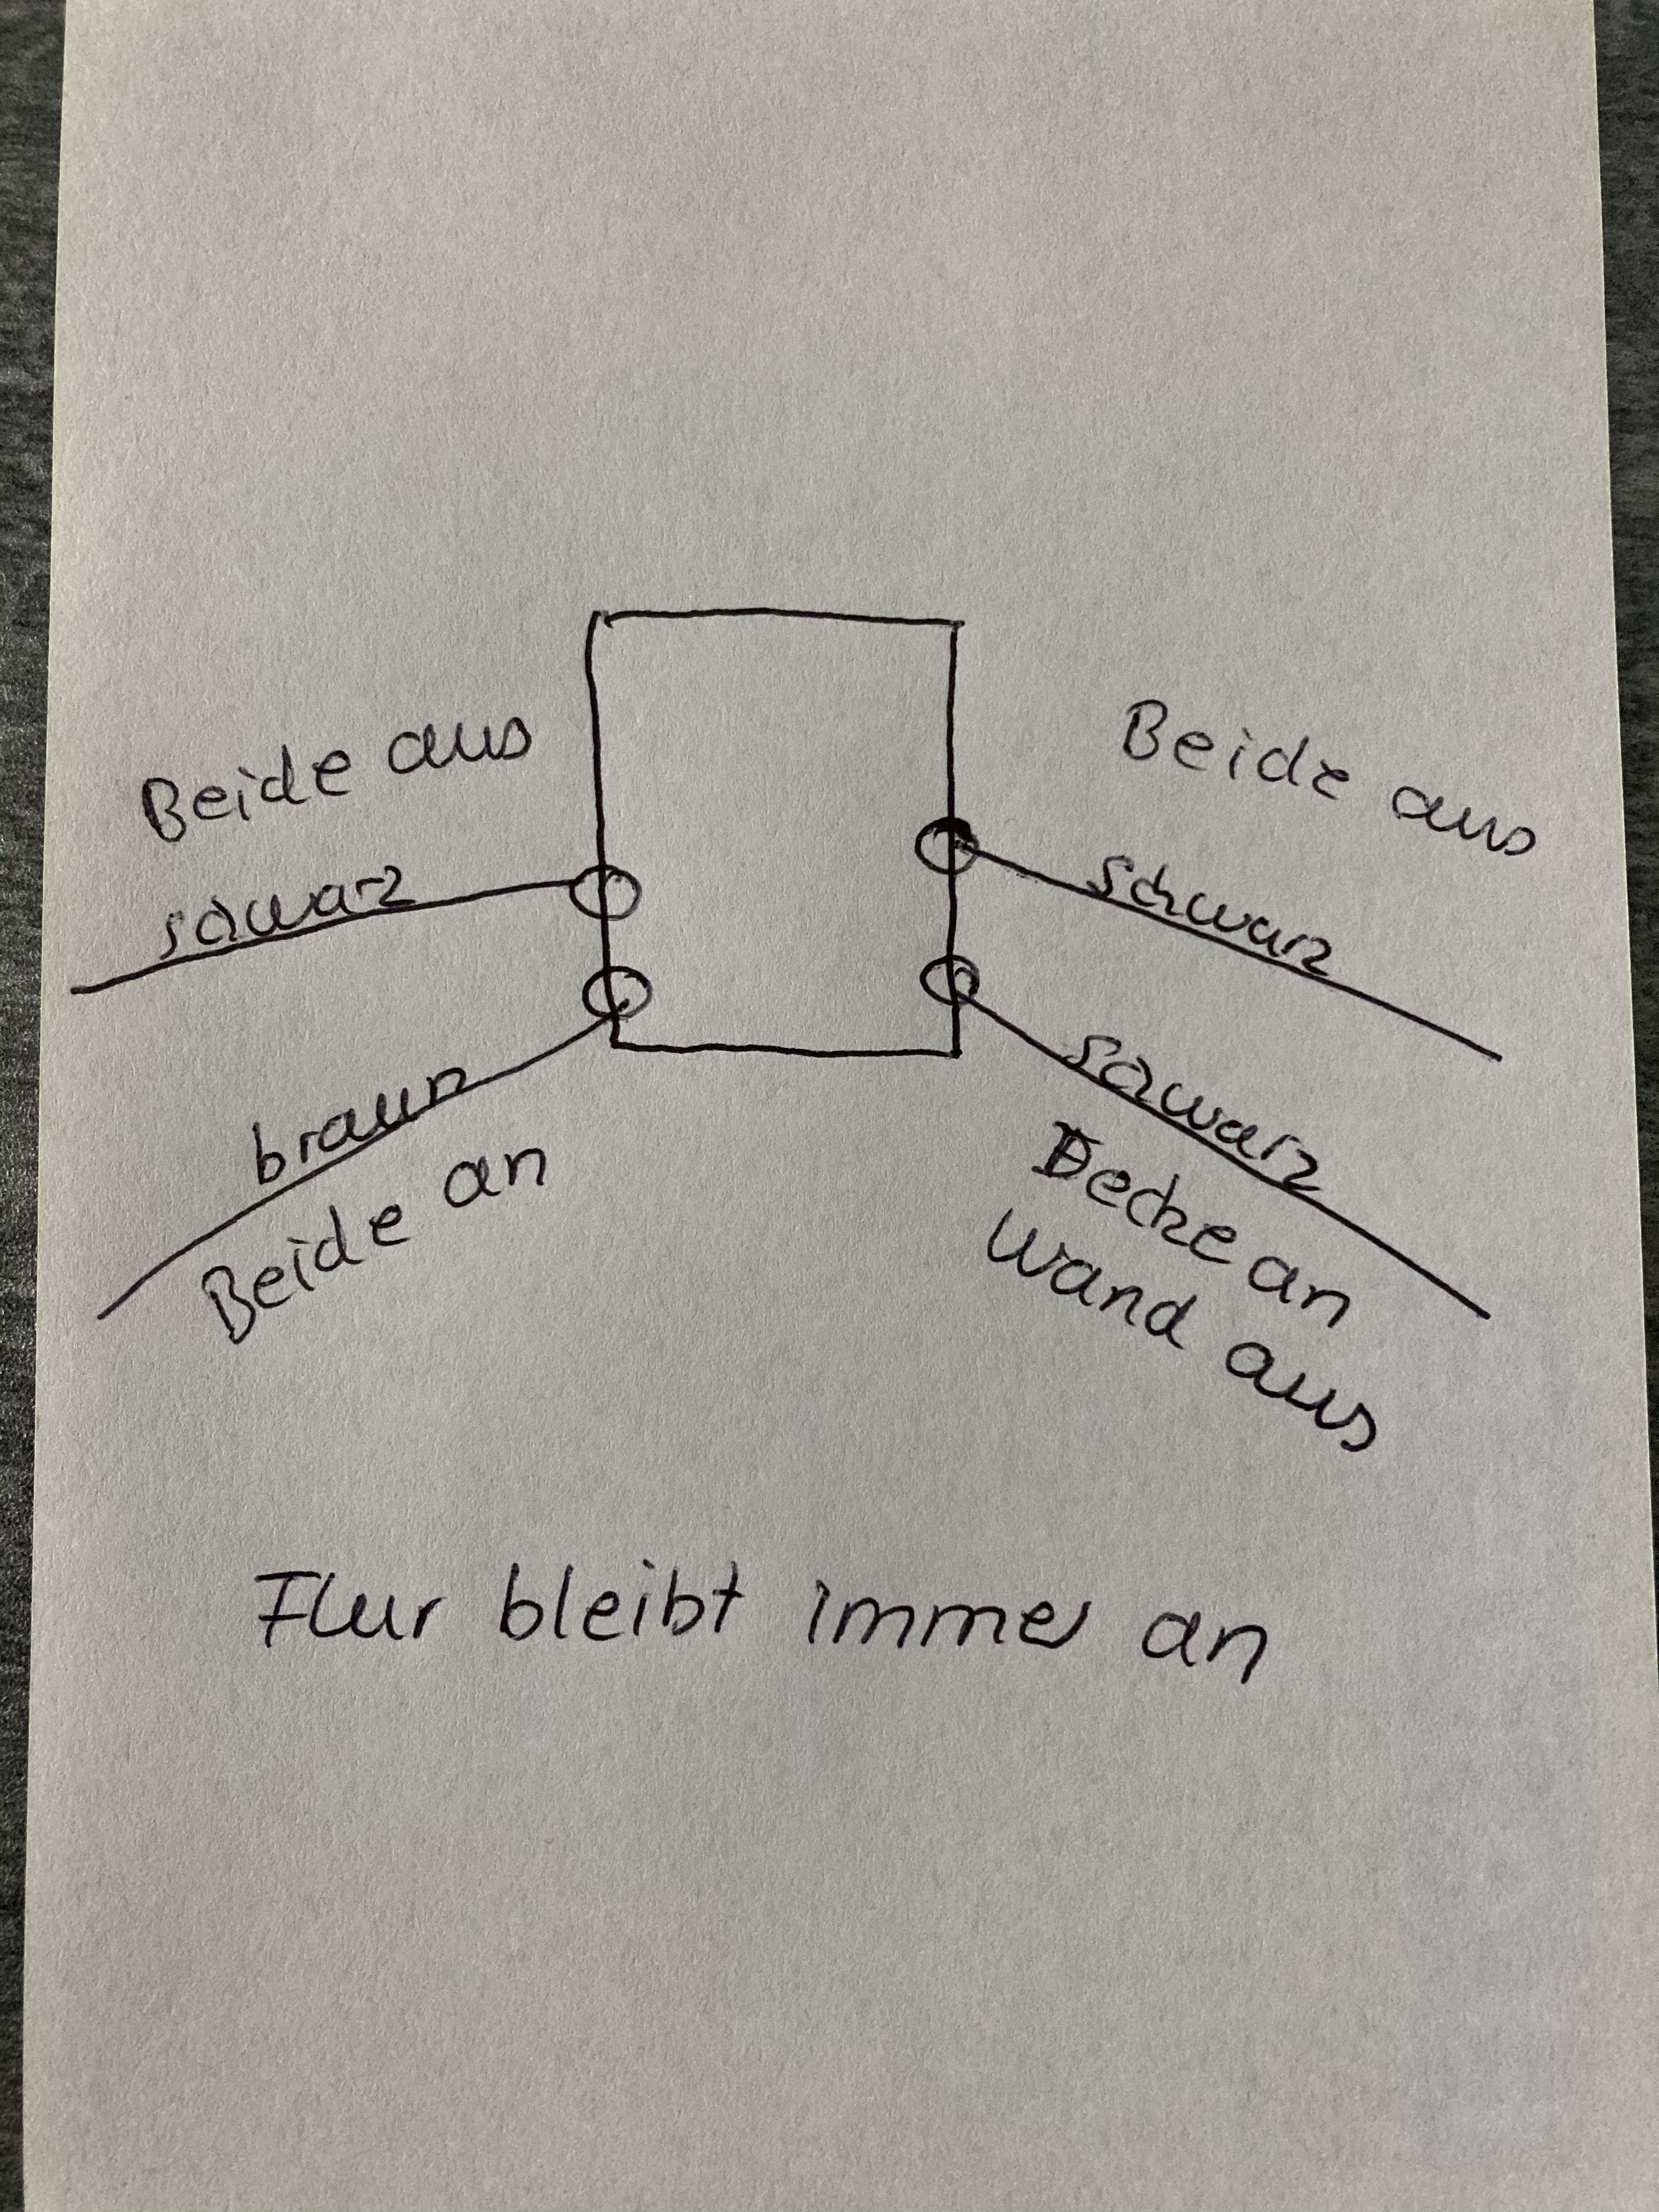 Beide aus
schwarz
braun
Beide an
Beide aus
schwarz
schwarz
Decke an
Wand aus
Flur bleibt immer an